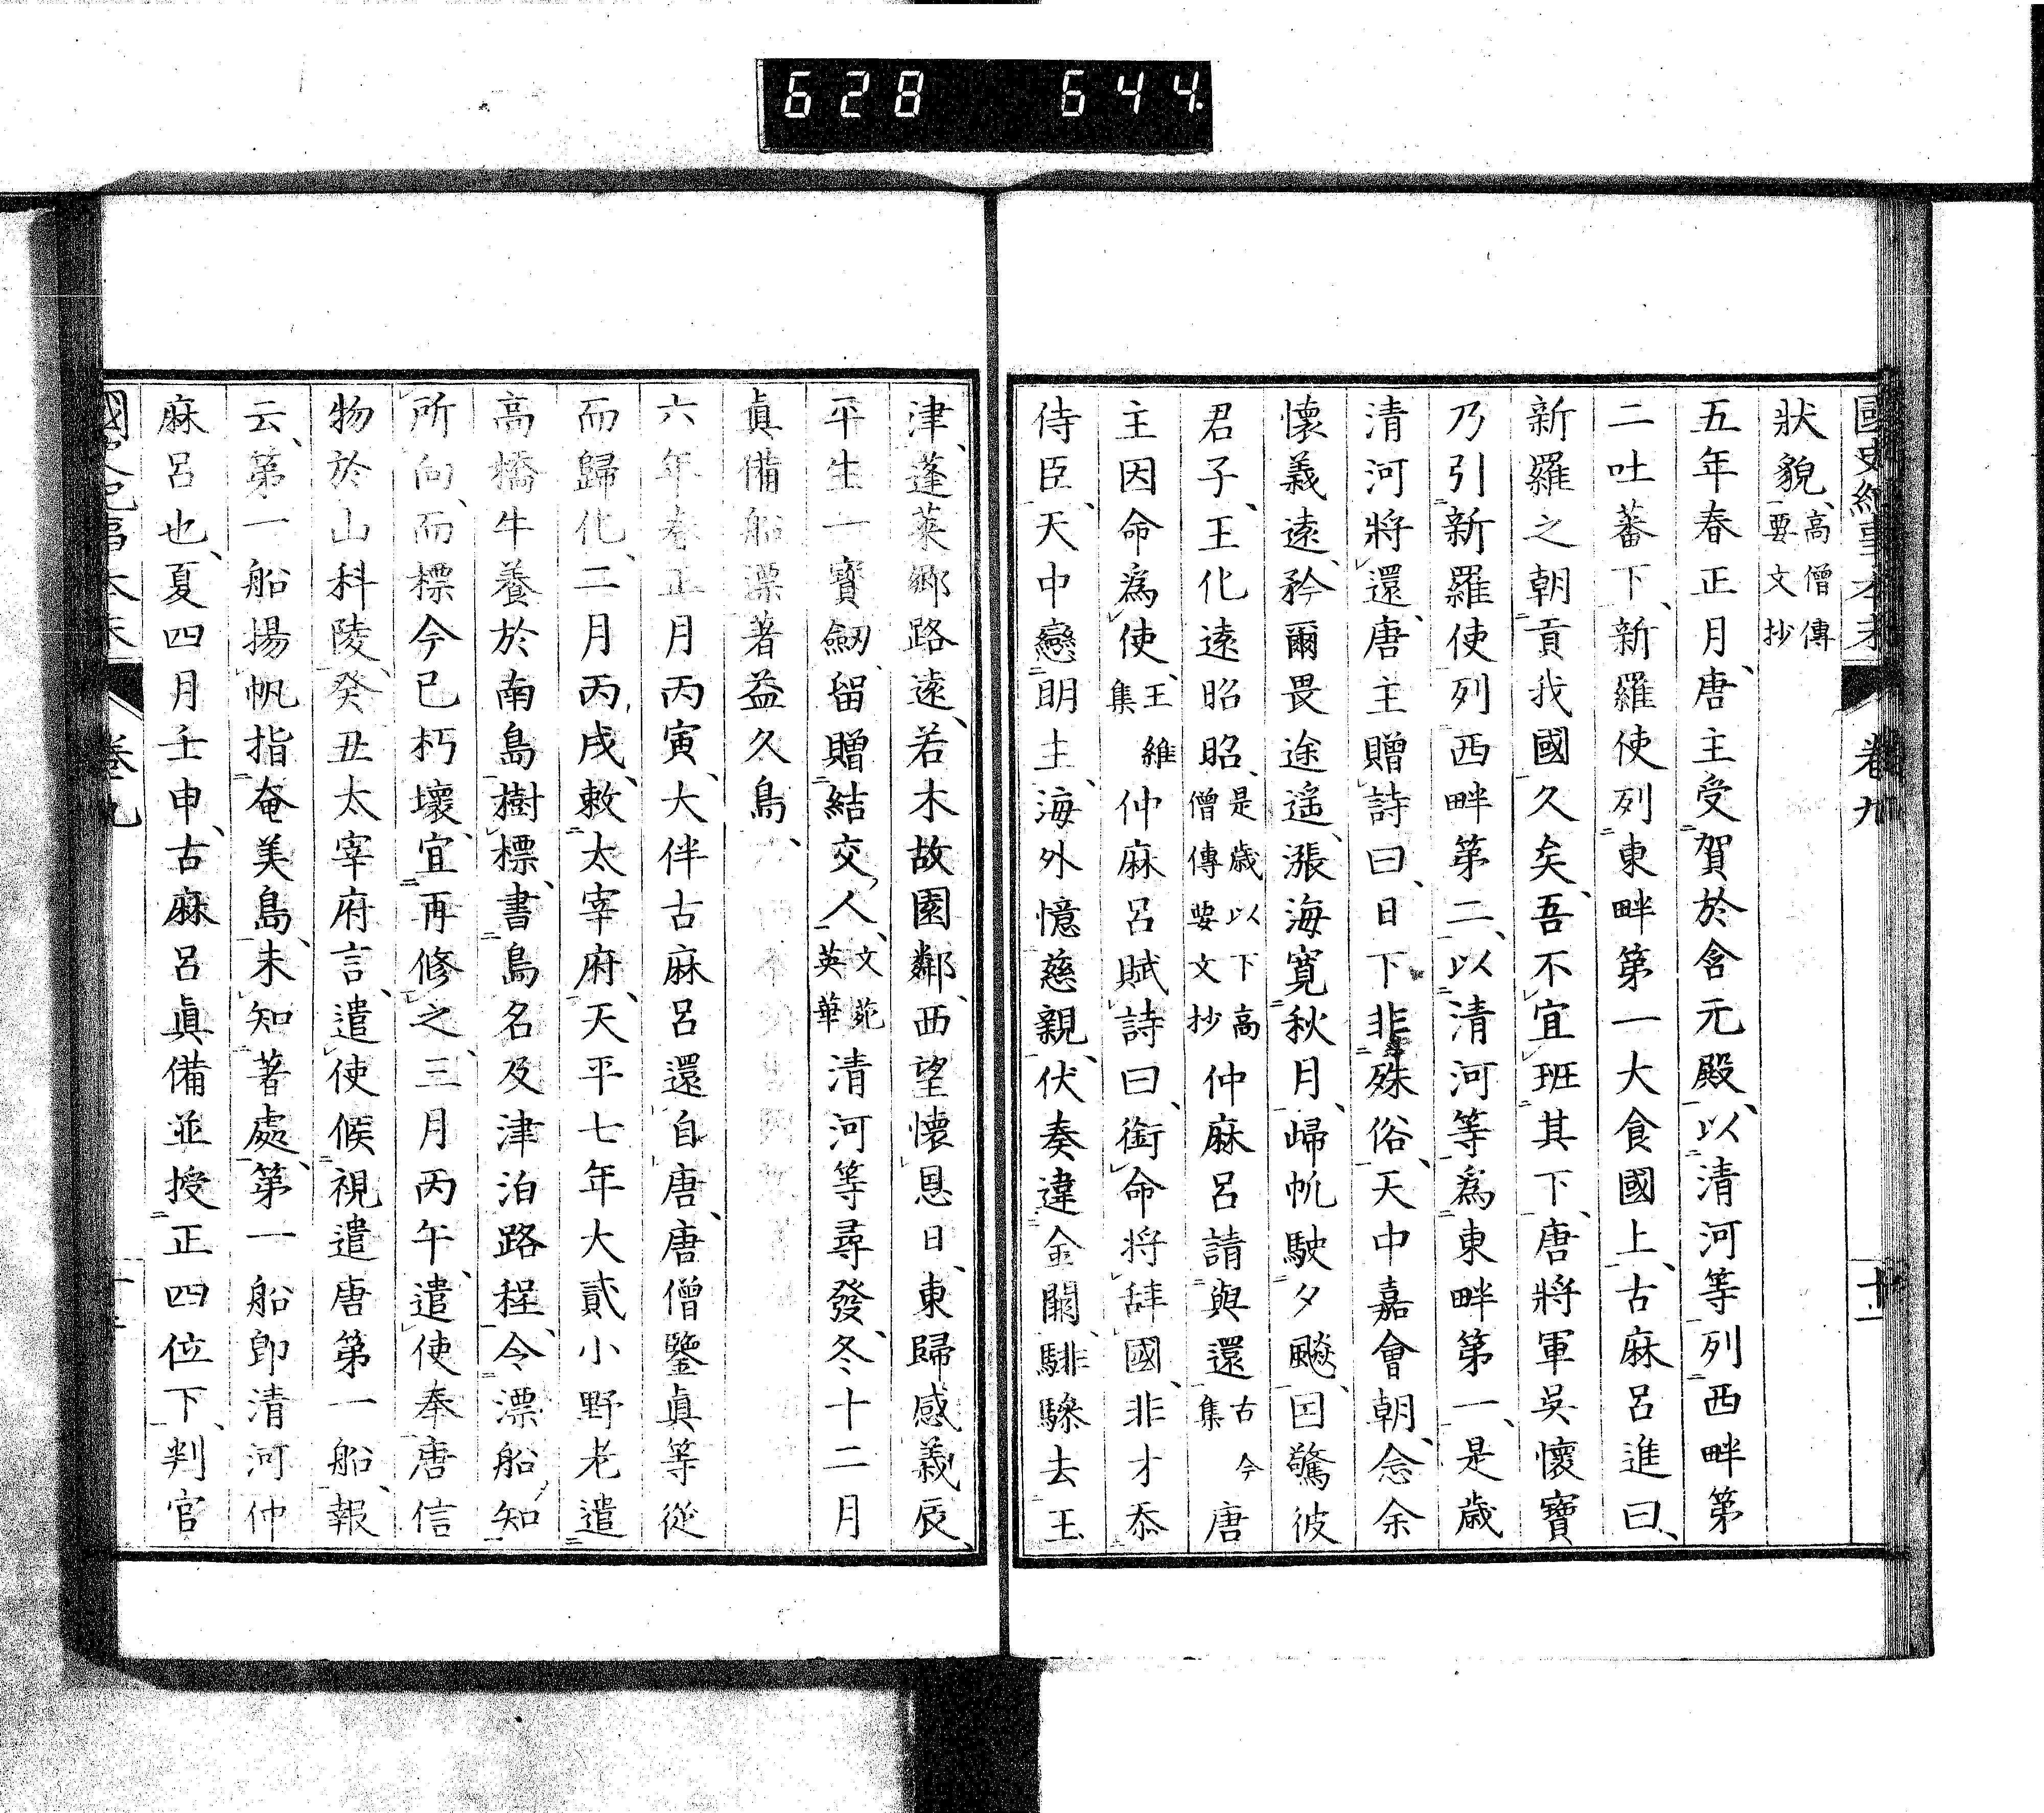 628 644.
國史紀事本末 卷九 十一
狀貌、高僧傳要文抄
五年春正月、唐主受賀於含元殿、以清河等列西畔第
二吐蕃下、新羅使列東畔第一大食國上、古麻呂進曰、
新羅之朝貢我國久矣、吾不宜班其下、唐將軍吳懷寶
乃引新羅使列西畔第二、以清河等爲東畔第一、是歲
清河將還、唐主贈詩曰、日下非殊俗、天中嘉會朝、念余
懷義遠、矜爾畏途遙、漲海寬秋月、歸帆駛夕飈、因驚彼
君子、王化遠昭昭、是歲以下高僧傳要文抄仲麻呂請與還古今集唐
主因命爲使、王維集仲麻呂賦詩曰、銜命將辞國、非才忝
侍臣、天中戀明主、海外憶慈親、伏奏違金闕、騑驂去玉
津、蓬萊鄉路遠、若木故園鄰、西望懷恩日、東歸感義辰、
平生一寶劒、留贈結交人、文苑英華清河等尋發、冬十二月
眞備船漂著益久島、
六年春正月丙寅、大伴古麻呂還自唐、唐僧鑒眞等從
而歸化、二月丙戌、敕太宰府、天平七年大貳小野老遣
高橋牛養於南島樹標、書島名及津泊路程、令漂船知
所向、而標今已朽壞、宜再修之、三月丙午、遣使奉唐信
物於山科陵、癸丑太宰府言、遣使候視遣唐第一船、報
云、第一船揚帆指奄美島、未知著處、第一船卽清河仲
麻呂也、夏四月壬申、古麻呂眞備並授正四位下、判官
國史紀事本末 卷九